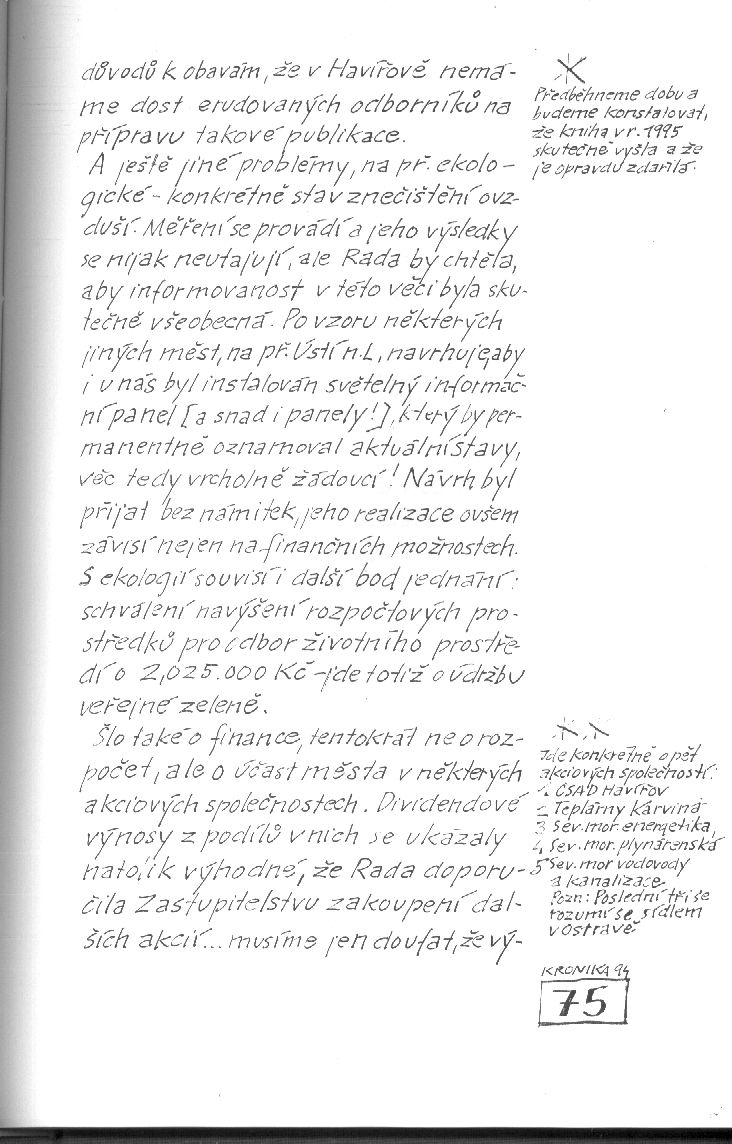 důvodů k obavám, že v Havířově nemá-
me dost erudovaných odborníků na
přípravu takové publikace.
A ještě jiné problémy, na př. ekolo-
gické - konkrétně stav znečištění ovz-
duší. Měření se provádí a jeho výsledky
se nijak neutajují, ale Rada by chtěla,
aby informovanost v této věci byla sku-
tečně všeobecná. Po vzoru některých
jiných měst, na př. Ústí n.L, navrhuje, aby
i u nás byl instalován světelný informač-
ní panel [a snad i panely!], který by per-
manentně oznamoval aktuální stavy,
věc tedy vrcholně žádoucí! Návrh byl
přijat bez námitek, jeho realizace ovšem
závisí nejen na finančních možnostech.
S ekologií souvisí i další bod jednání:
schválení navýšení rozpočtových pro-
středků pro odbor životního prostře-
dí o 2,025.000 Kč - jde totiž o údržbu
veřejné zeleně.
Šlo také o finance, tentokrát ne o roz-
počet, ale o účast města v některých
akciových společnostech. Dividendové
výnosy z podílů v nich se ukázaly
natolik výhodné, že Rada doporu-
čila Zastupitelstvu zakoupení dal-
ších akcií... musíme jen doufat, že vý-
Předběhneme dobu a
budeme konstatovat,
že kniha v r. 1995
skutečně vyšla a že
je opravdu zdařilá.
Jde konkrétně o pět
akciových společností:
1 ČSAD Havířov
2 Teplárny Karviná
3 Sev. mor. energetika,
4 Sev. mor. plynárenská
5 Sev. mor vodovody
a kanalizace.
Pozn: Poslední tři se
rozumí se sídlem
v Ostravě
KRONIKA 94
75